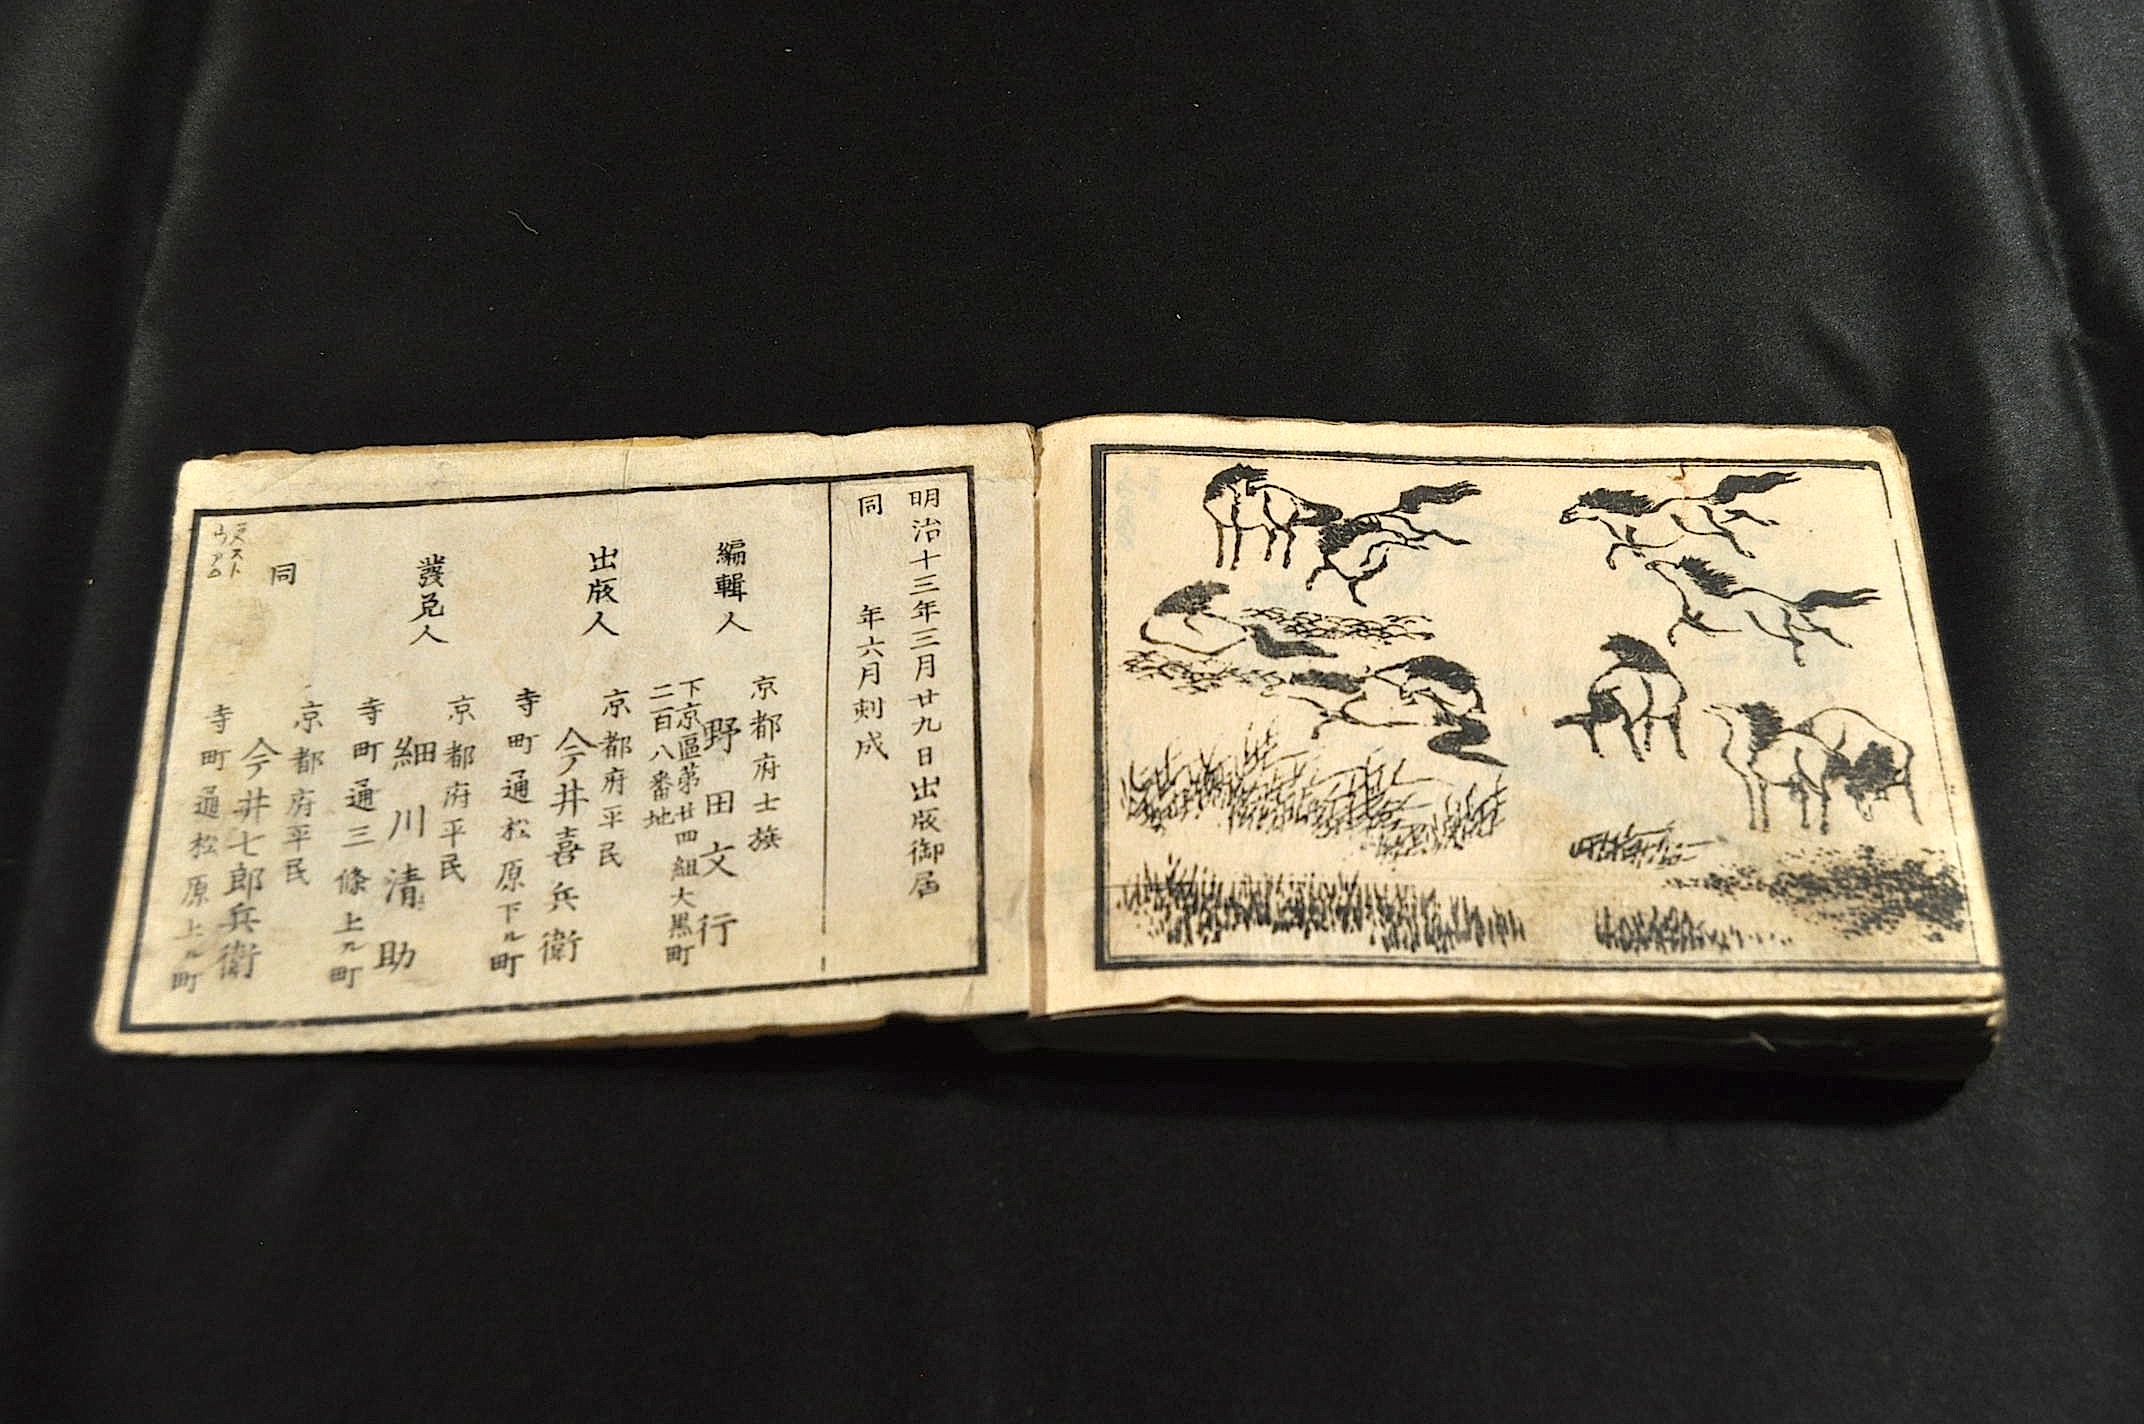 明治十三年三月廿九日出版御届
同　年六月刻成
編輯人
京都府士族
野田文行
下京區第廿四組大黒町
二百八番地
出版人
京都府平民
今井喜兵衛
寺町通松原下ル町
發兌人
京都府平民
細川清助
寺町通三條上ル町
同
京都府平民
今井七郎兵衛
寺町通松原上ル町